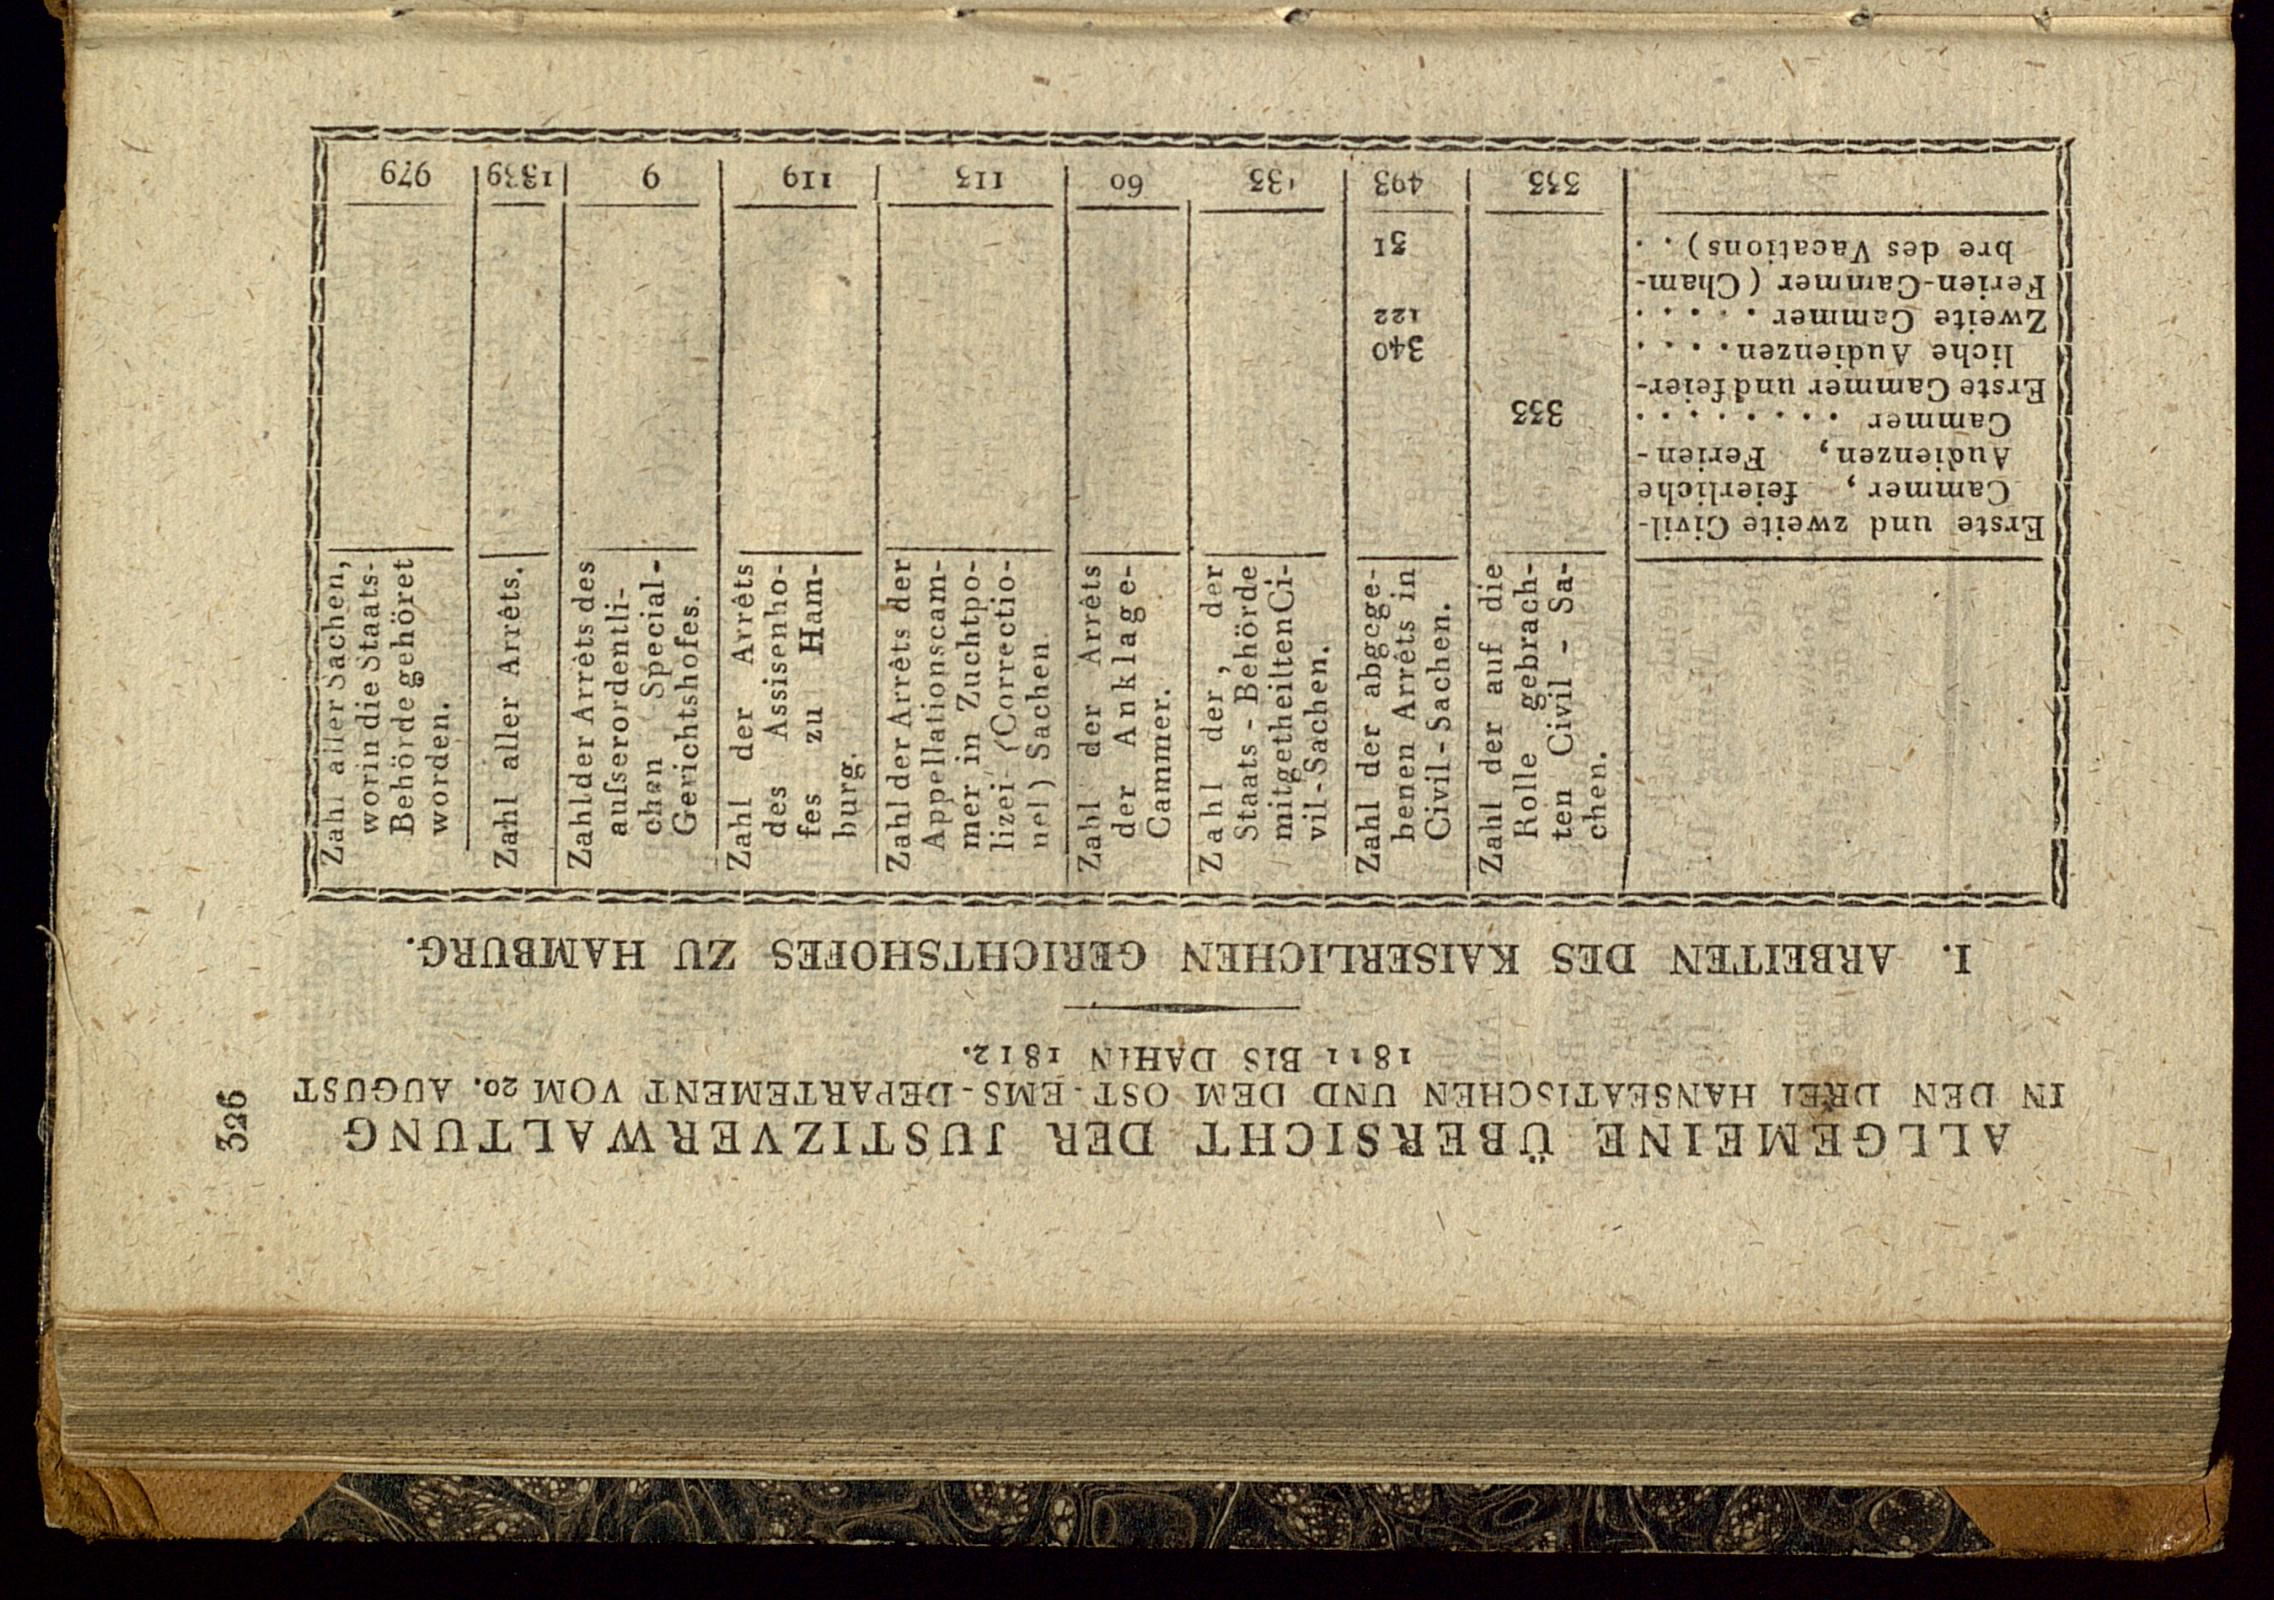 326
ALLGEMEINE ÜBERSICHT DER JUSTIZVERWALTUNG
IN DEN DREI HANSEATISCHEN UND DEM OST-EMS-DEPARTEMENT VOM 20. AUGUST
1811 BIS DAHIN 1812.
I. ARBEITEN DES KAISERLICHEN GERICHTSHOFES ZU HAMBURG.
Zahl der auf die
Rolle gebrach-
ten Civil-Sa-
chen.
Zahl der abgege-
benen Arrêts in
Civil-Sachen.
Zahl der, der
Staats-Behörde
mitgetheilten Ci-
vil-Sachen.
Zahl der Arrêts
der Anklage-
Cammer.
Zahl der Arrêts der
Appellationscam-
mer in Zuchtpo-
lizei- (Correctio-
nel) Sachen
Zahl der Arrêts
des Assisenho-
fes zu Ham-
burg.
Zahl der Arrêts des
auſserordentli-
chen Special-
Gerichtshofes.
Zahl aller Arrêts.
Zahl aller Sachen,
worin die Staats-
Behörde gehöret
worden.
Erste und zweite Civil-
Cammer, feierliche
Audienzen, Ferien-
Cammer . . . . . . . 333
Erste Cammer und feier-
liche Audienzen. . . . 340
Zweite Cammer . . . . . 122
Ferien-Cammer (Cham-
bre des Vacations) . . 31
333 493 133 60 113 119 9 1339 979